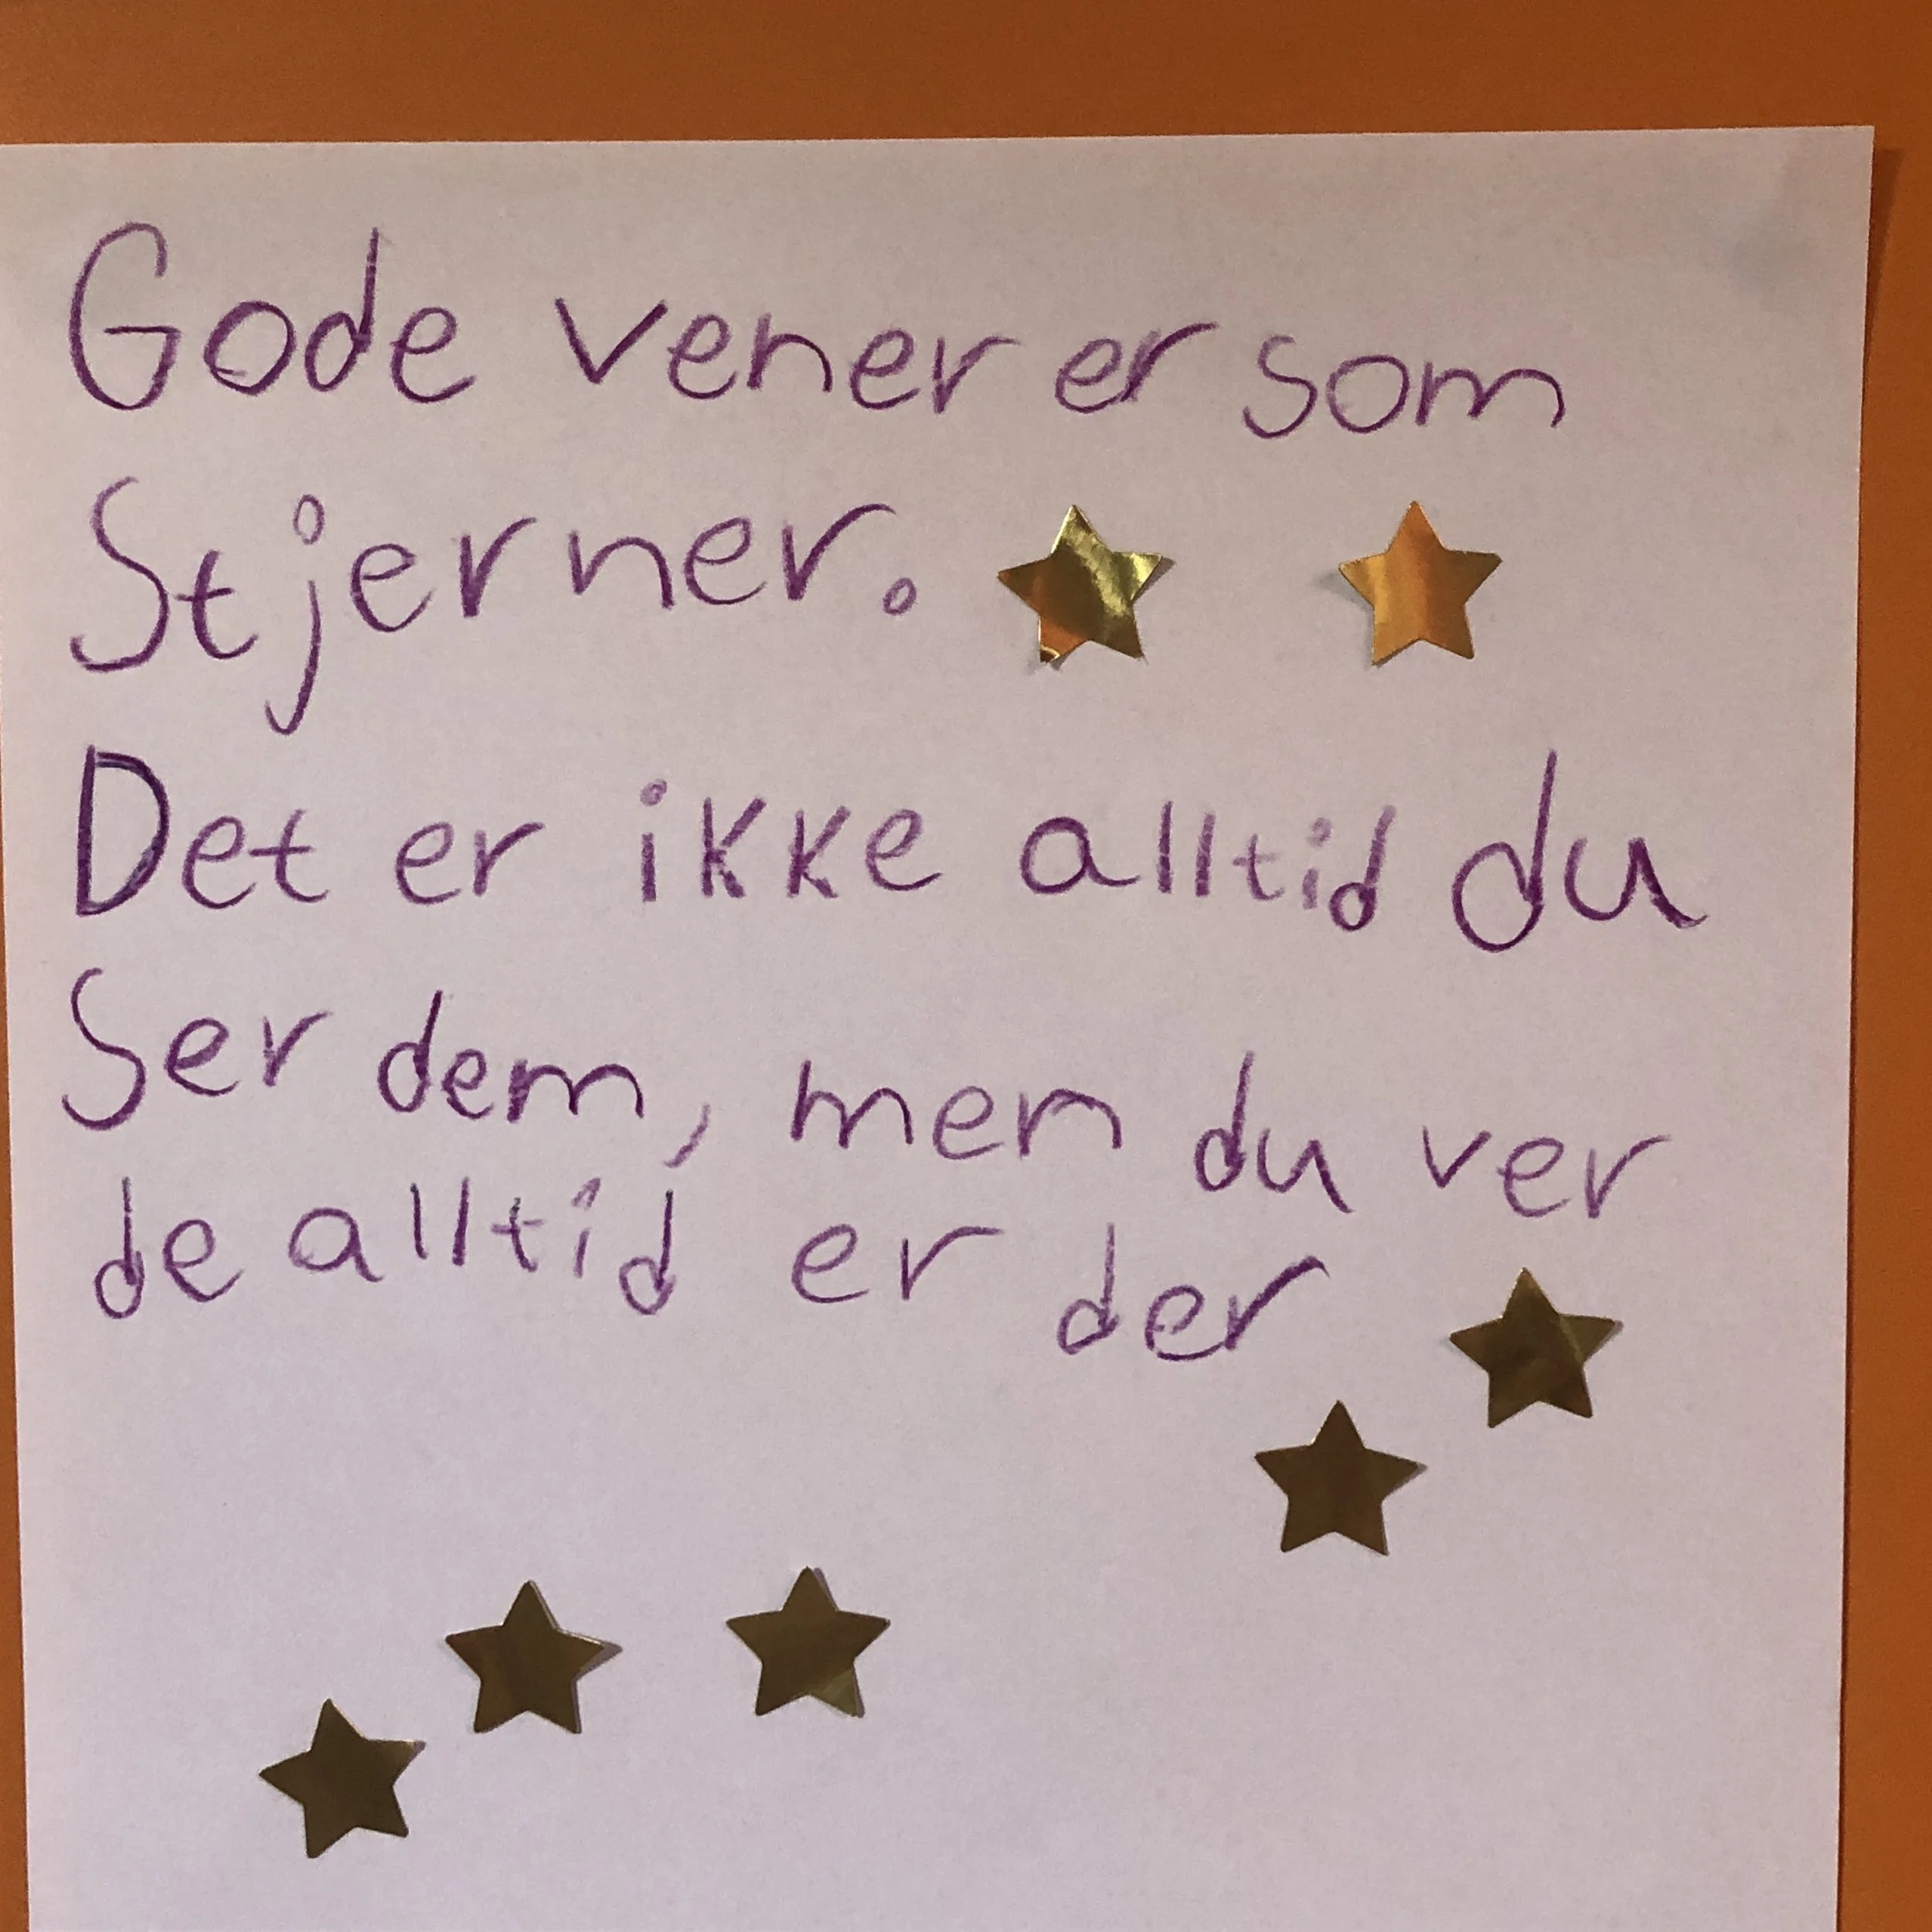 Gode vener er som
Stjerner.
Det er ikke alltid du
Ser dem, men du ver
de alltid er der